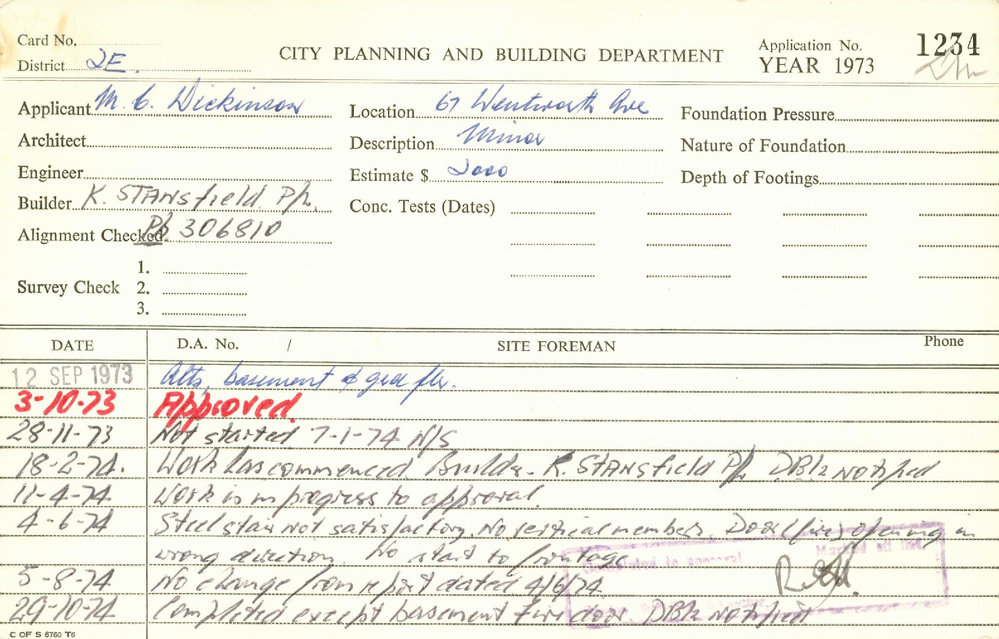 Card No.
District 2E.
CITY PLANNING AND BUILDING DEPARTMENT
Application No. 1234
YEAR 1973
Applicant M. C. Dickinson
Location 67 Wentworth Ave
Foundation Pressure
Architect
Description Minor
Nature of Foundation
Engineer
Estimate $ 2000
Depth of Footings
Builder K. STANSfield P/L.
Conc. Tests (Dates)
Alignment Checked. Ph 306810
Survey Check 1.
2.
3.
DATE D.A. No. / SITE FOREMAN Phone
12 SEP 1973 Alts, basement & grd flr.
3-10-73 Approved
28-11-73 Not started 7-1-74 N/S
18-2-74. Work has commenced. Builder - K. STANSfield P/L DBI2 Notified
11-4-74. Work is in progress to approval.
4-6-74 Steel stair not satisfactory. No vertical members, Door (fire) opening in
wrong direction No start to frontage
5-8-74. No change from report dated 4/6/74.
29-10-74 Completed except basement fire door. DBI2 Notified
Completed to approval
Marked off list
C OF S 6760 T6